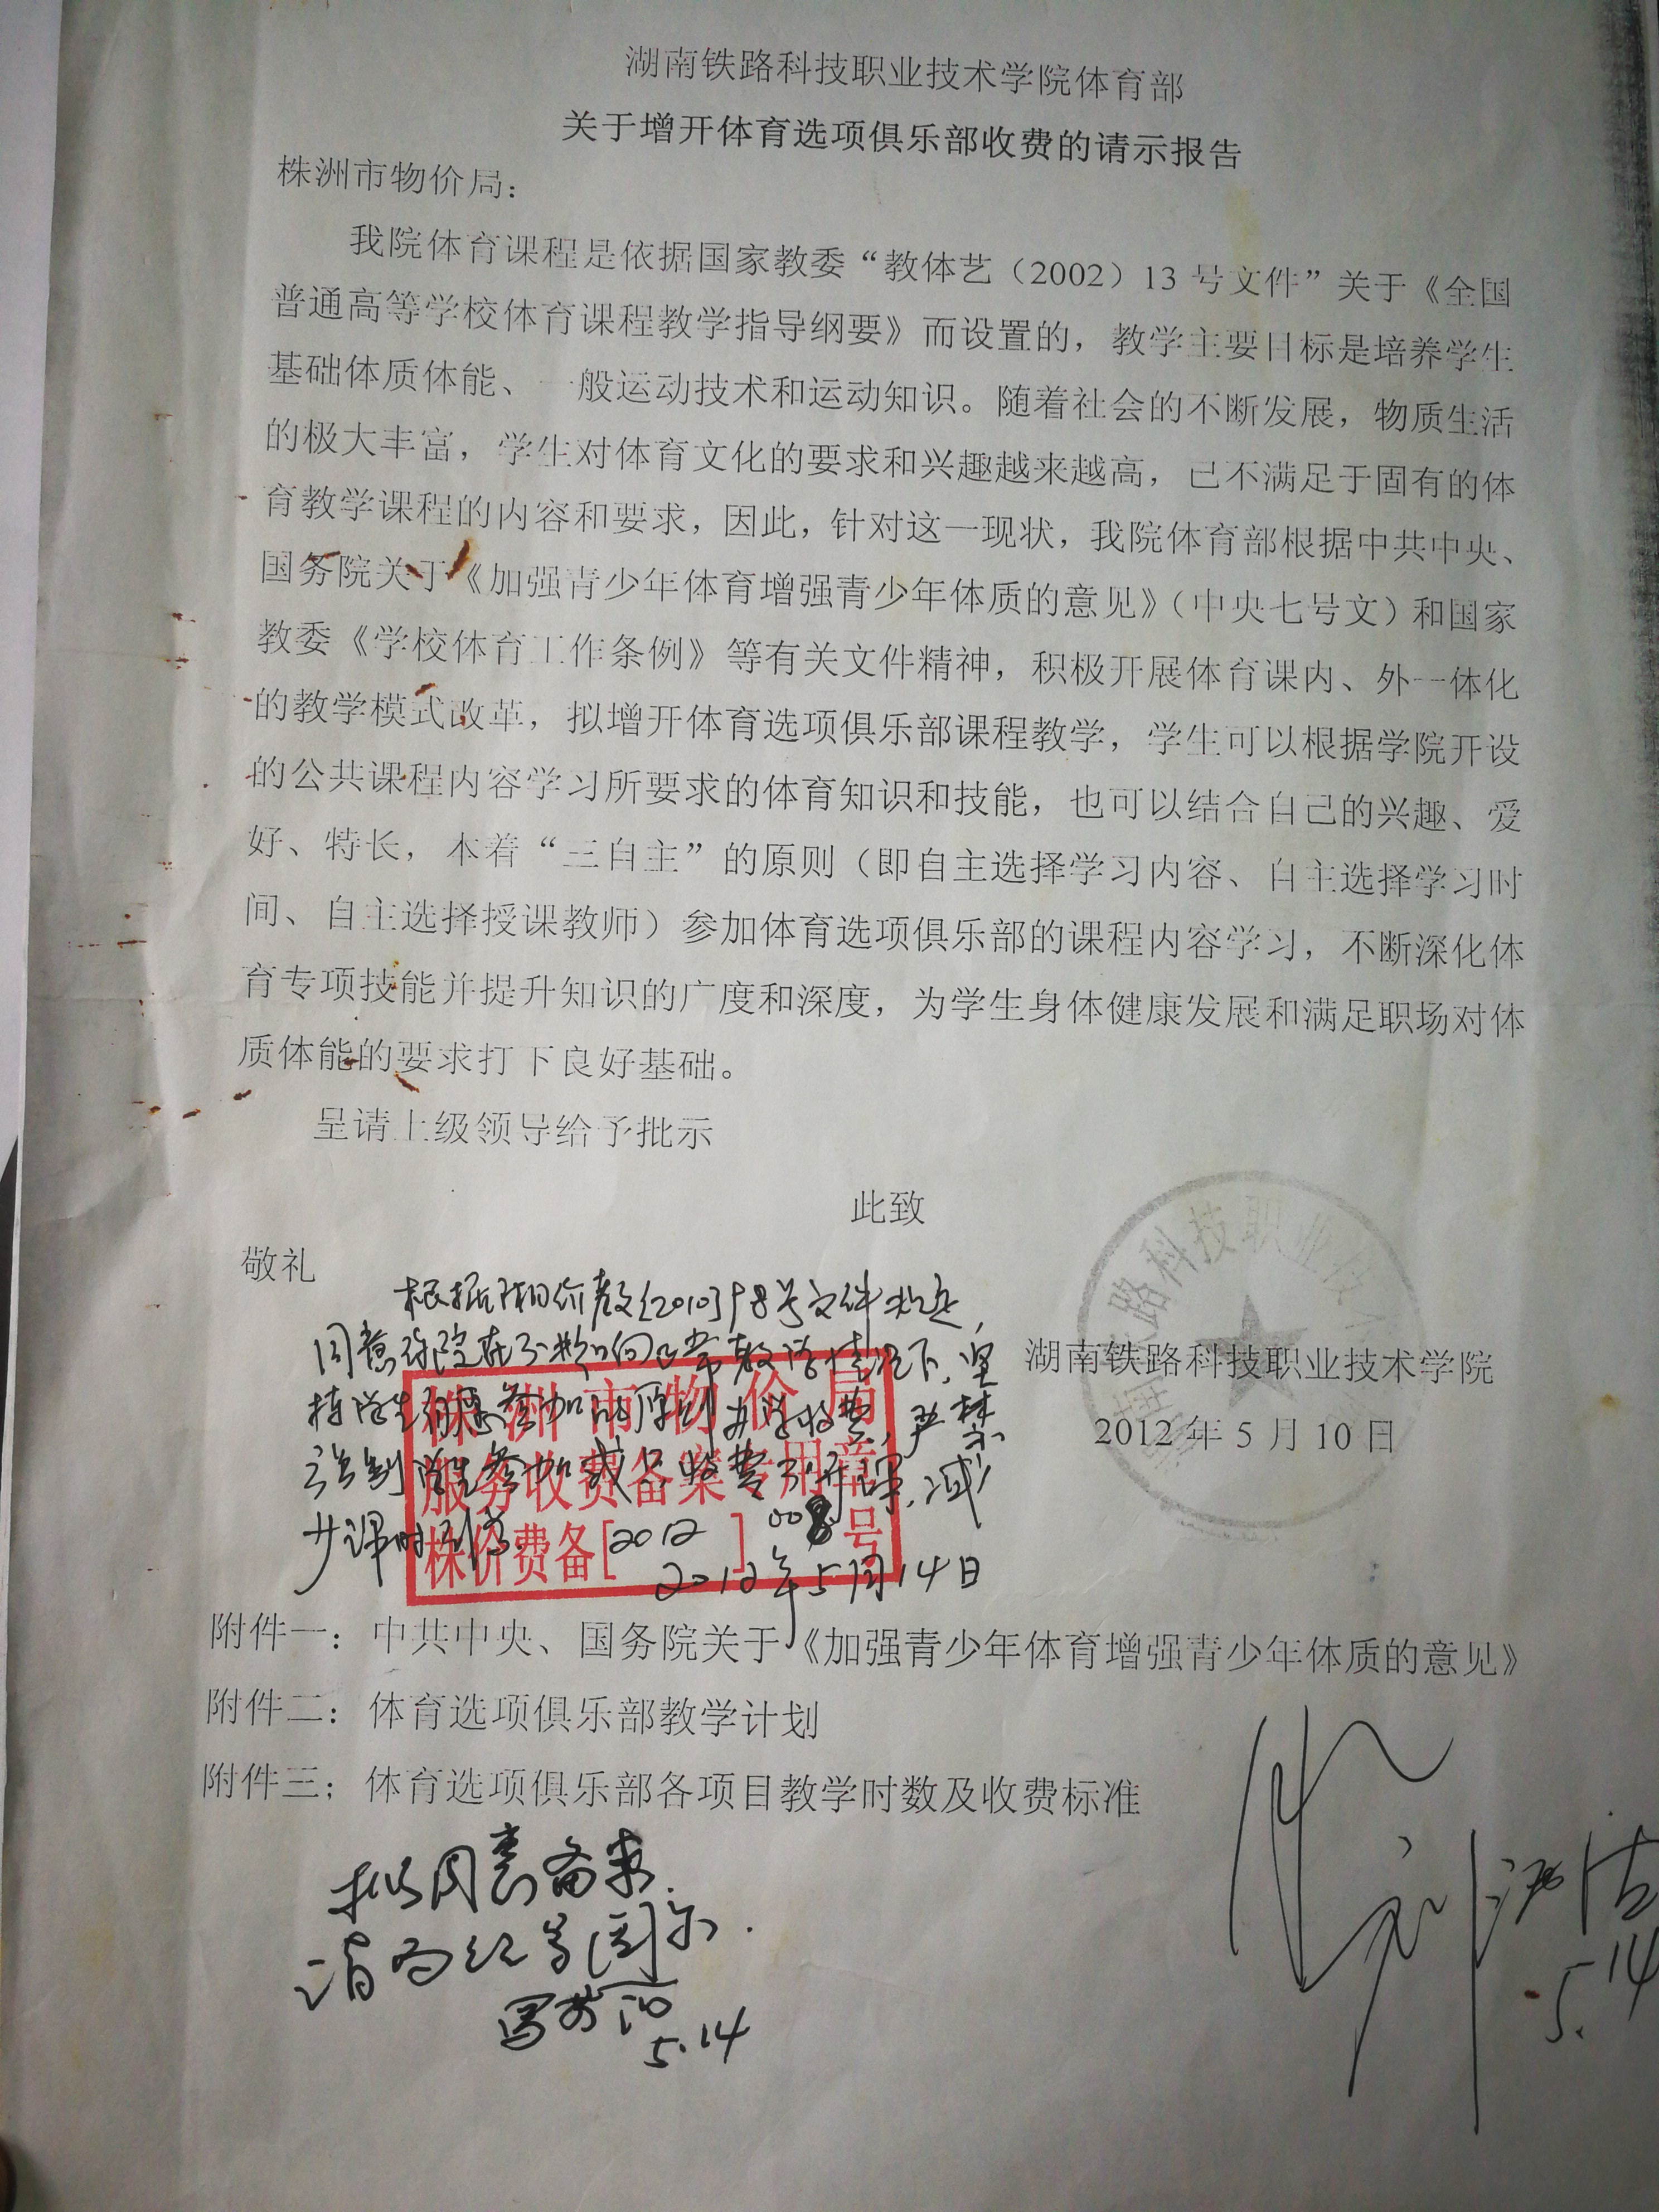 湖南铁路科技职业技术学院体育部
关于增开体育选项俱乐部收费的请示报告
株洲市物价局：
我院体育课程是依据国家教委“教体艺（2002）13 号文件”关于《全国
普通高等学校体育课程教学指导纲要》而设置的，教学主要目标是培养学生
基础体质体能、一般运动技术和运动知识。随着社会的不断发展，物质生活
的极大丰富，学生对体育文化的要求和兴趣越来越高，已不满足于固有的体
育教学课程的内容和要求，因此，针对这一现状，我院体育部根据中共中央、
国务院关于《加强青少年体育增强青少年体质的意见》（中央七号文）和国家
教委《学校体育工作条例》等有关文件精神，积极开展体育课内、外一体化
的教学模式改革，拟增开体育选项俱乐部课程教学，学生可以根据学院开设
的公共课程内容学习所要求的体育知识和技能，也可以结合自己的兴趣、爱
好、特长，本着“三自主”的原则（即自主选择学习内容、自主选择学习时
间、自主选择授课教师）参加体育选项俱乐部的课程内容学习，不断深化体
育专项技能并提升知识的广度和深度，为学生身体健康发展和满足职场对体
质体能的要求打下良好基础。
呈请上级领导给予批示
此致
敬礼
根据湘价教[2010]98号文件规定，
同意你院在不影响正常教学情况下，坚
持学生自愿参加的原则办学收费，严禁
强制学生参加或只收费不开课，减
少课时
株洲市物价局
服务收费备案专用章
株价费备[2012]008号
2012年5月14日
路科技职业技
湖南铁路科技职业技术学院
2012 年 5 月 10 日
附件一：中共中央、国务院关于《加强青少年体育增强青少年体质的意见》
附件二：体育选项俱乐部教学计划
附件三：体育选项俱乐部各项目教学时数及收费标准
拟同意备案.
请
5.14
5.14